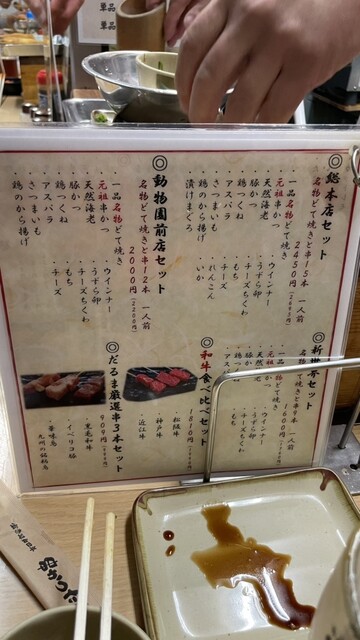 単品
単品
◎総本店セット
名物どて焼きと串15本 一人前
2450円
・一品名物どて焼き
・元祖串かつ
・豚かつ
・天然海老
・鶏つくね
・アスパラ
・さつまいも
・鶏のから揚げ
・漬けまぐろ
・ウインナー
・うずら卵
・チーズちくわ
・もち
・チーズ
・れんこん
・いか
◎動物園前店セット
名物どて焼きと串12本 一人前
2000円(2200円)
・一品名物どて焼き
・元祖串かつ
・天然海老
・豚かつ
・鶏つくね
・アスパラ
・さつまいも
・鶏のから揚げ
・ウインナー
・うずら卵
・チーズちくわ
・もち
・チーズ
一人前
1600円
・元祖串かつ
・天然海老
・豚かつ
・鶏つくね
・アスパ
・ウインナー
・うずら卵
・チーズちくわ
・もち
◎和牛食べ比べセット
1810円
・松阪牛
・神戸牛
・近江牛
◎だるま厳選串3本セット
909円
・黒毛和牛
・イベリコ豚
・華味鳥
九州の銘柄鳥
串かつだ